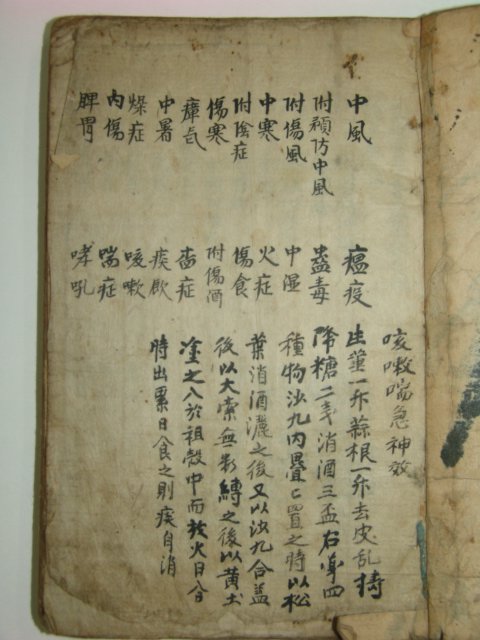 中風
附預防中風
附傷風
中寒
附陰症
傷寒
瘴氣
中暑
燥症
內傷
脾胃
瘟疫
蠱毒
中濕
火症
傷食
附傷酒
痰厥
咳嗽
喘症
哮吼
咳嗽喘急神效
生薑一升蒜根一升去皮乱搗
降糖二戔消酒三盃右等四
種物沙九內疊〻置之時以松
葉消酒灑之後又以沙九合盖
後以大索無數縛之後以黄土
塗之入於祖殼中而於火日合
時出累日食之則痰自消